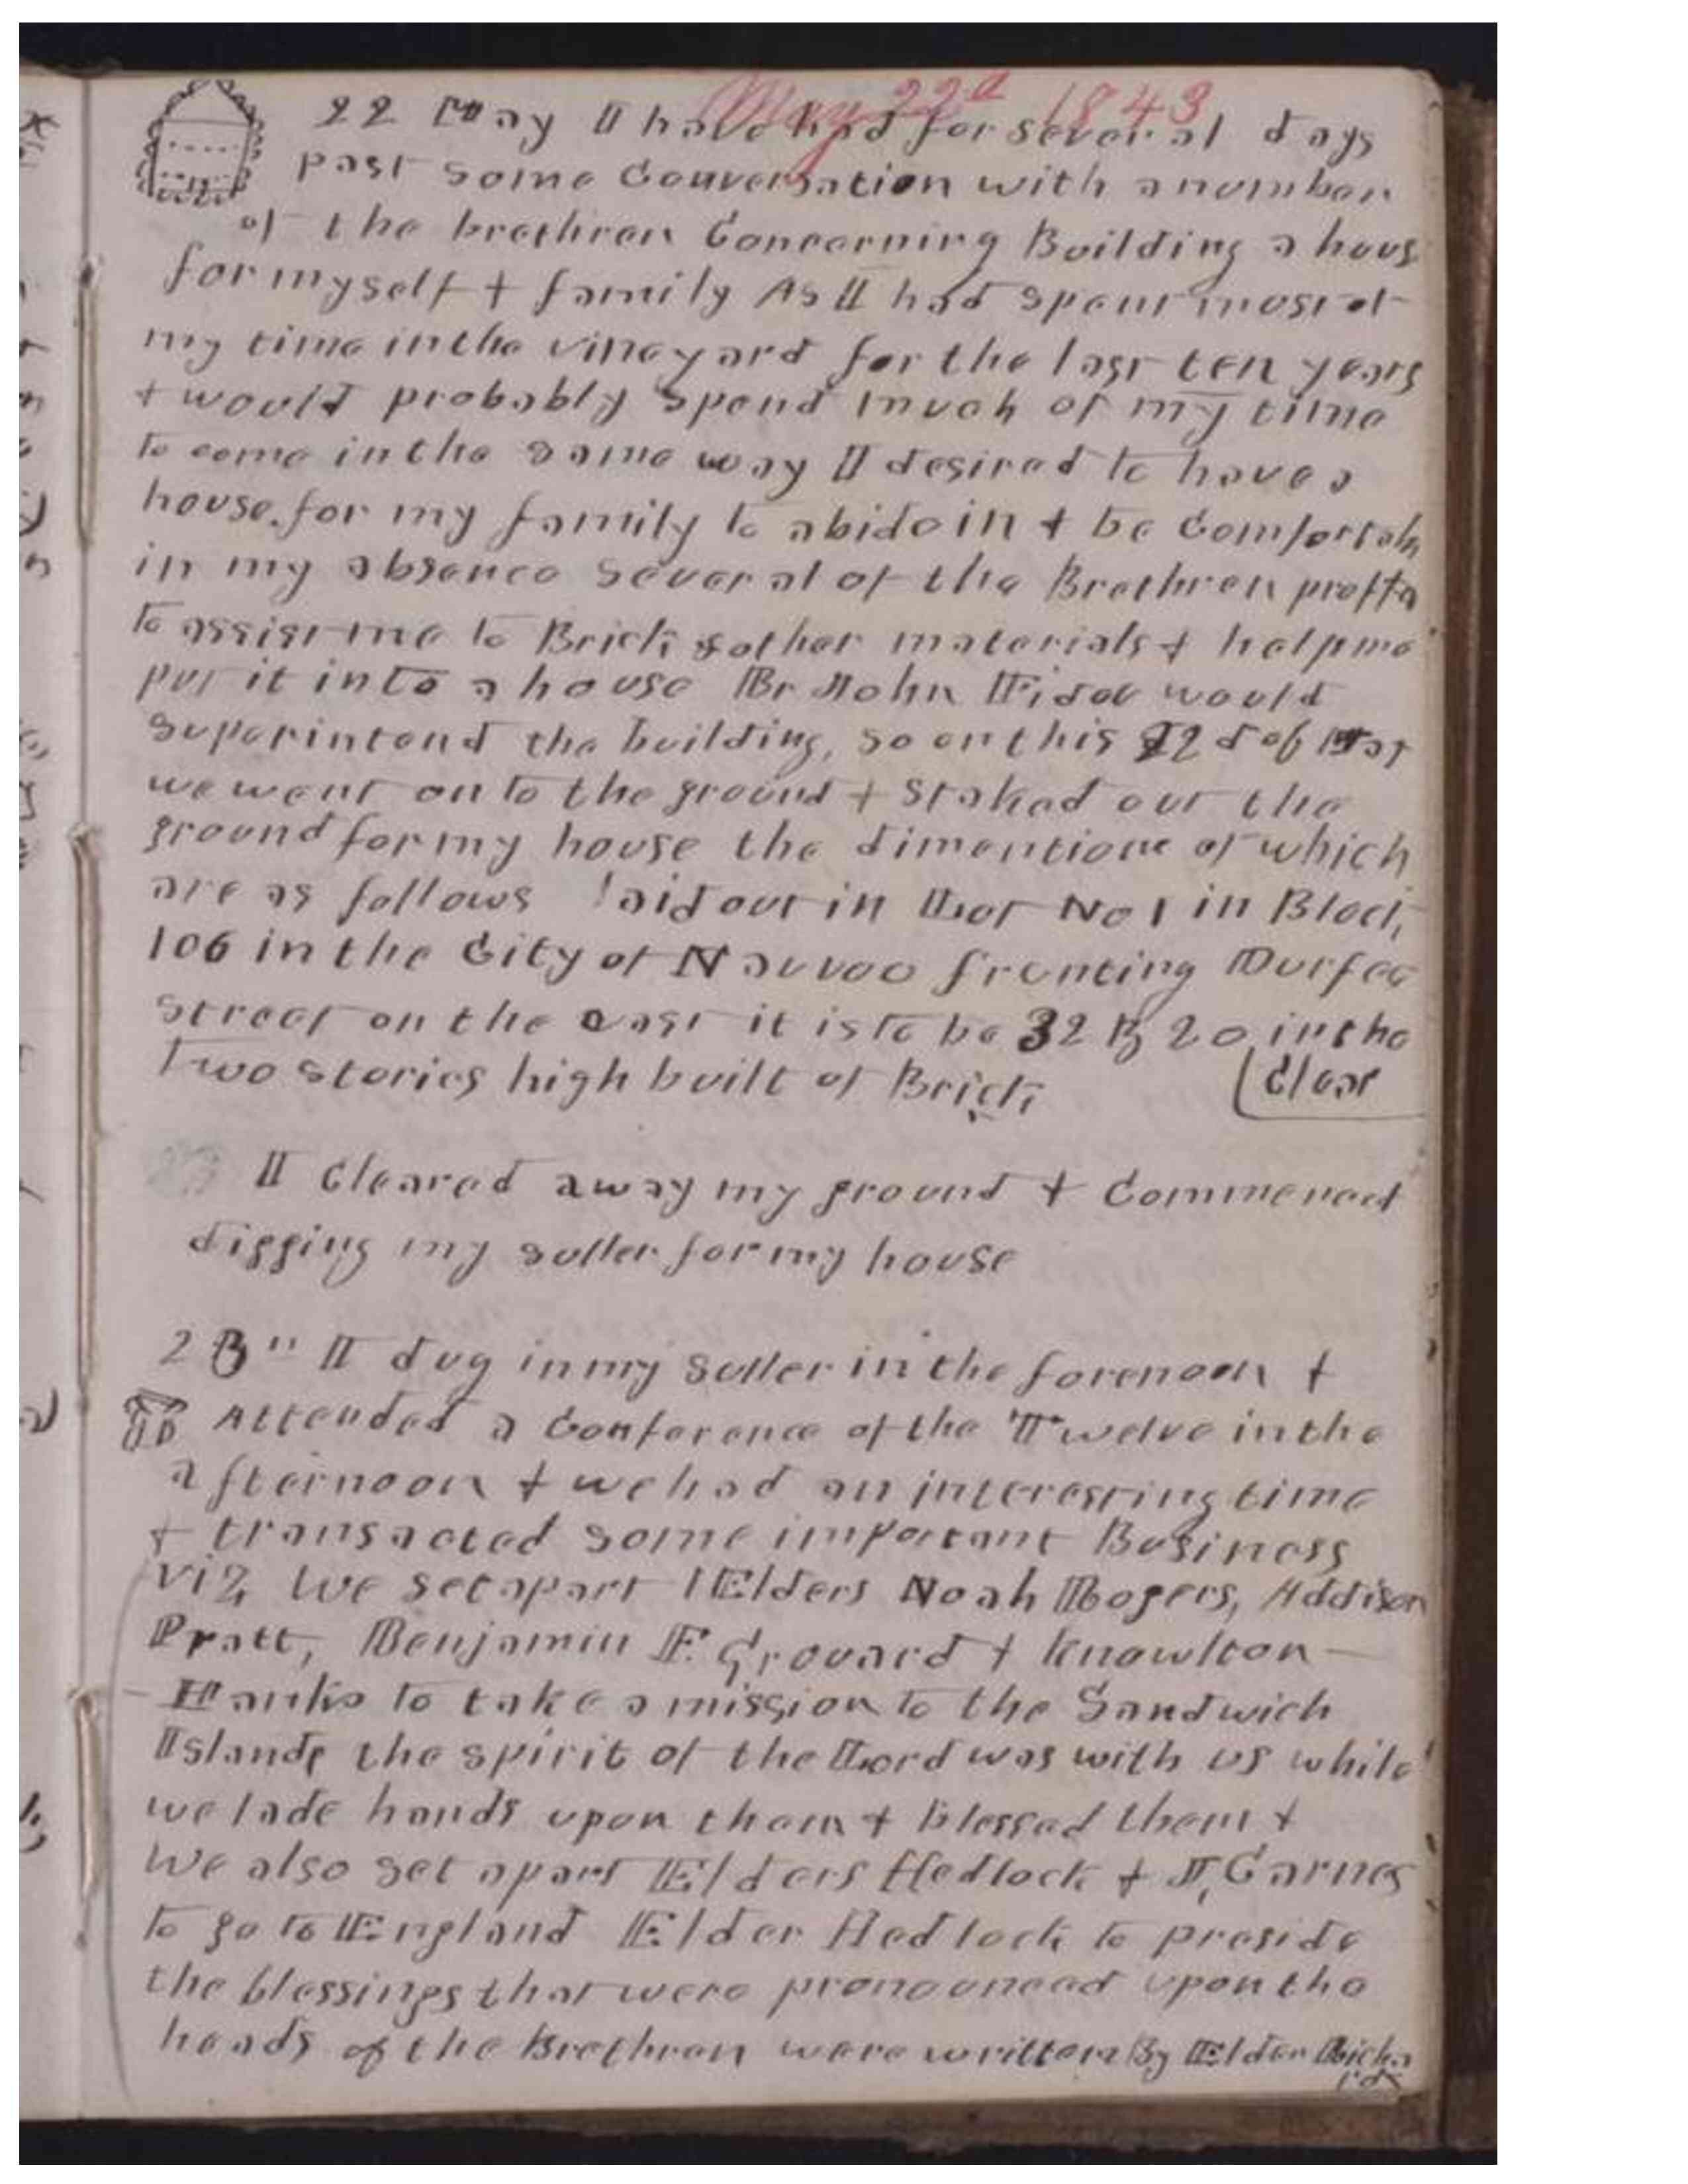 May 22d 1843
22 May I have had for several days
past some Conversation with a number
of the brethren Concerning Building a hous
for myself + family As I had spent most of
my time in the vineyard for the last ten years
+ would probably spend much of my time
to come in the same way I desired to have a
house for my family to abide in + be Comfortab
in my absence several of the Brethren
to assist me to Brick & other materials + help me
put it into a house Br John would
superintend the building, so on this 22d of May
we went on to the ground + staked out the
ground for my house the dimentions of which
are as follows laid out in Lot No 1 in Block
106 in the City of Nauvoo fronting Durfee
street on the east it is to be 32 By 20 in the
Clear
two stories high built of Brick
I Cleared away my ground + Commenced
digging my suller for my house
23" I dug in my suller in the forenoon +
Attended a Conference of the Twelve in the
afternoon + we had an interesting time
+ transacted some important Business
viz We set apart Elders Noah Rogers, Addison
Pratt, Benjamin F. Grouard + Knowlton
Hanks to take a mission to the Sandwich
Islands the spirit of the Lord was with us while
we lade hands upon them + blessed them +
We also set apart Elders Hedlock + J, Carnes
to go to England Elder Hedlock to preside
the blessings that were pronounced upon the
heads of the Brethren were written By Elder Richa
rds